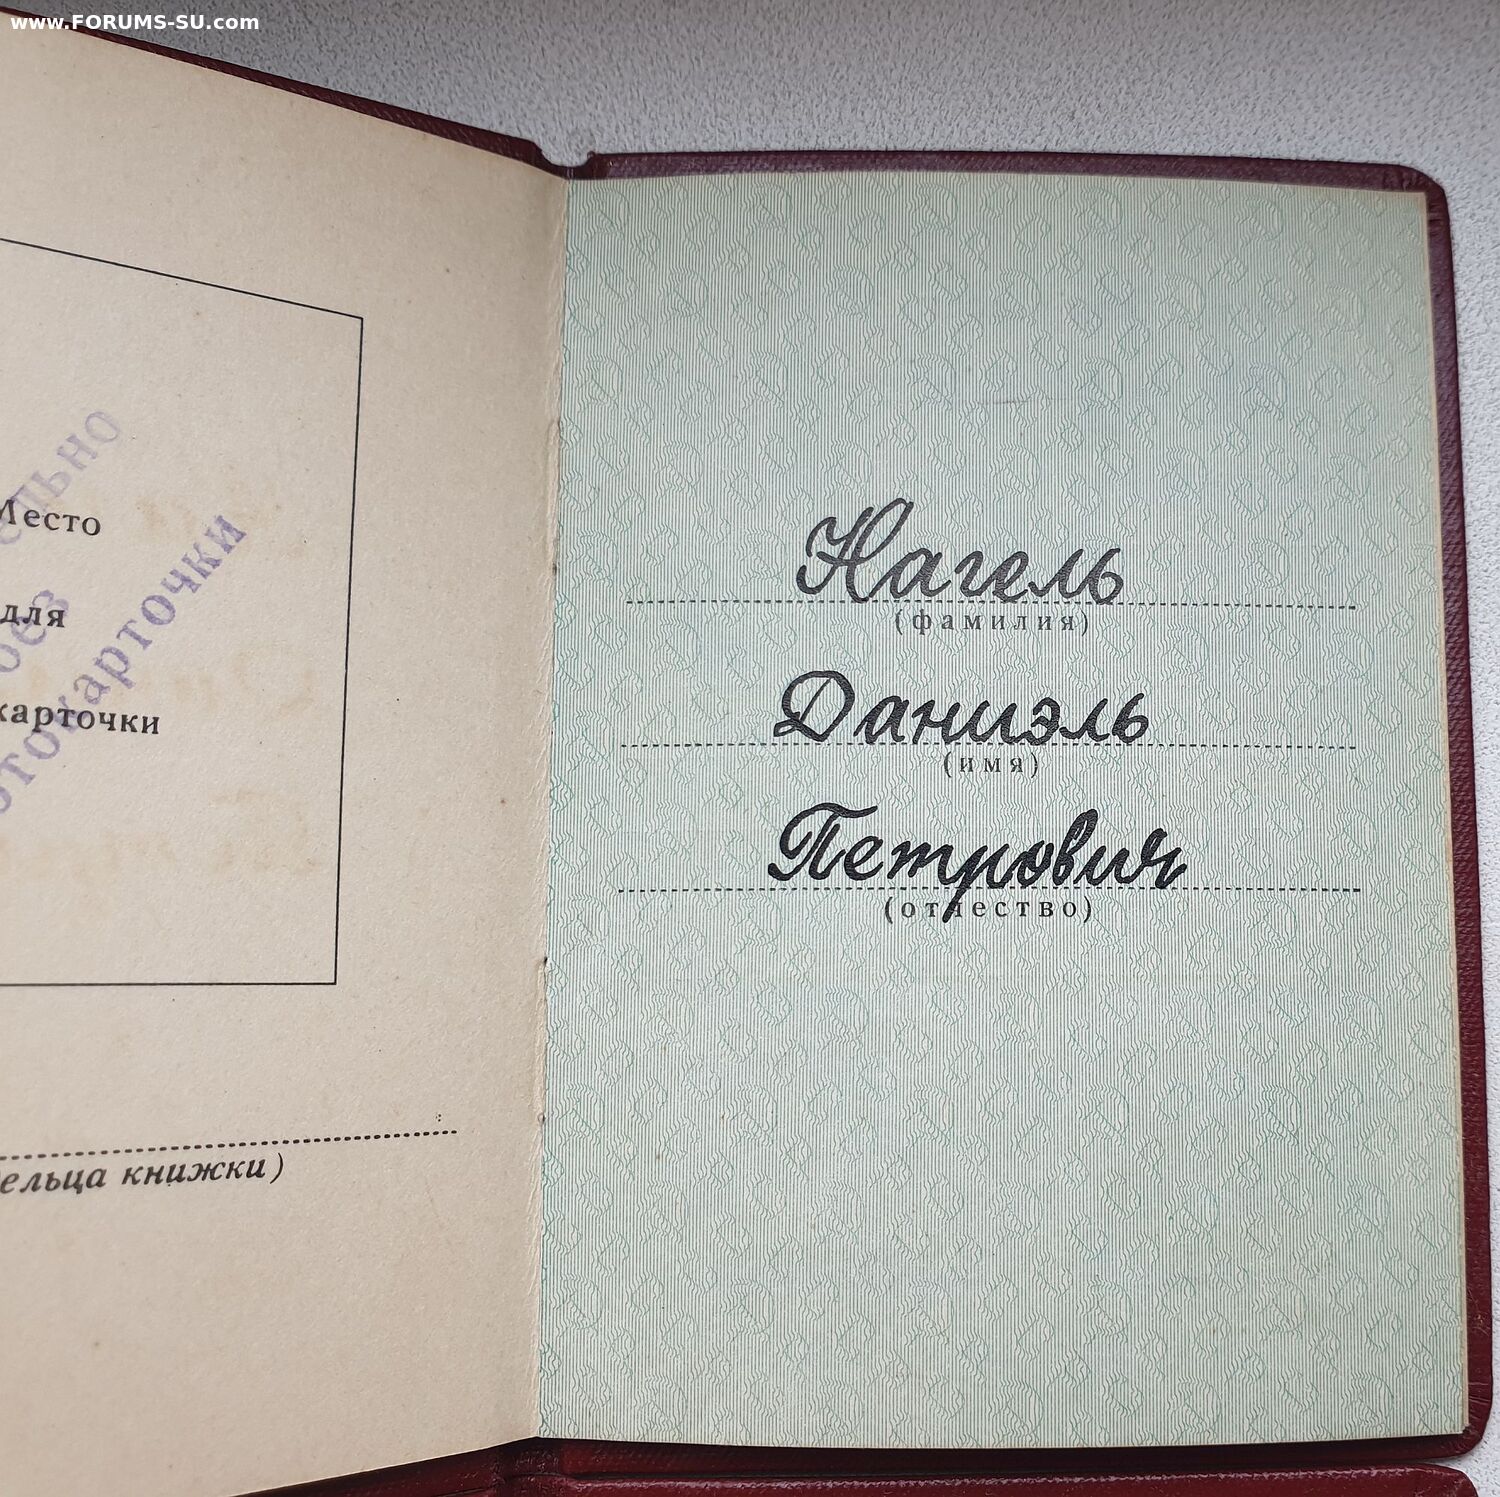 www.FORUMS-SU.com
Место
для
карточки
ельно
без
отокарточки
ельца книжки)
Нагель
(фамилия)
Даниэль
(имя)
Петрович
(отчество)